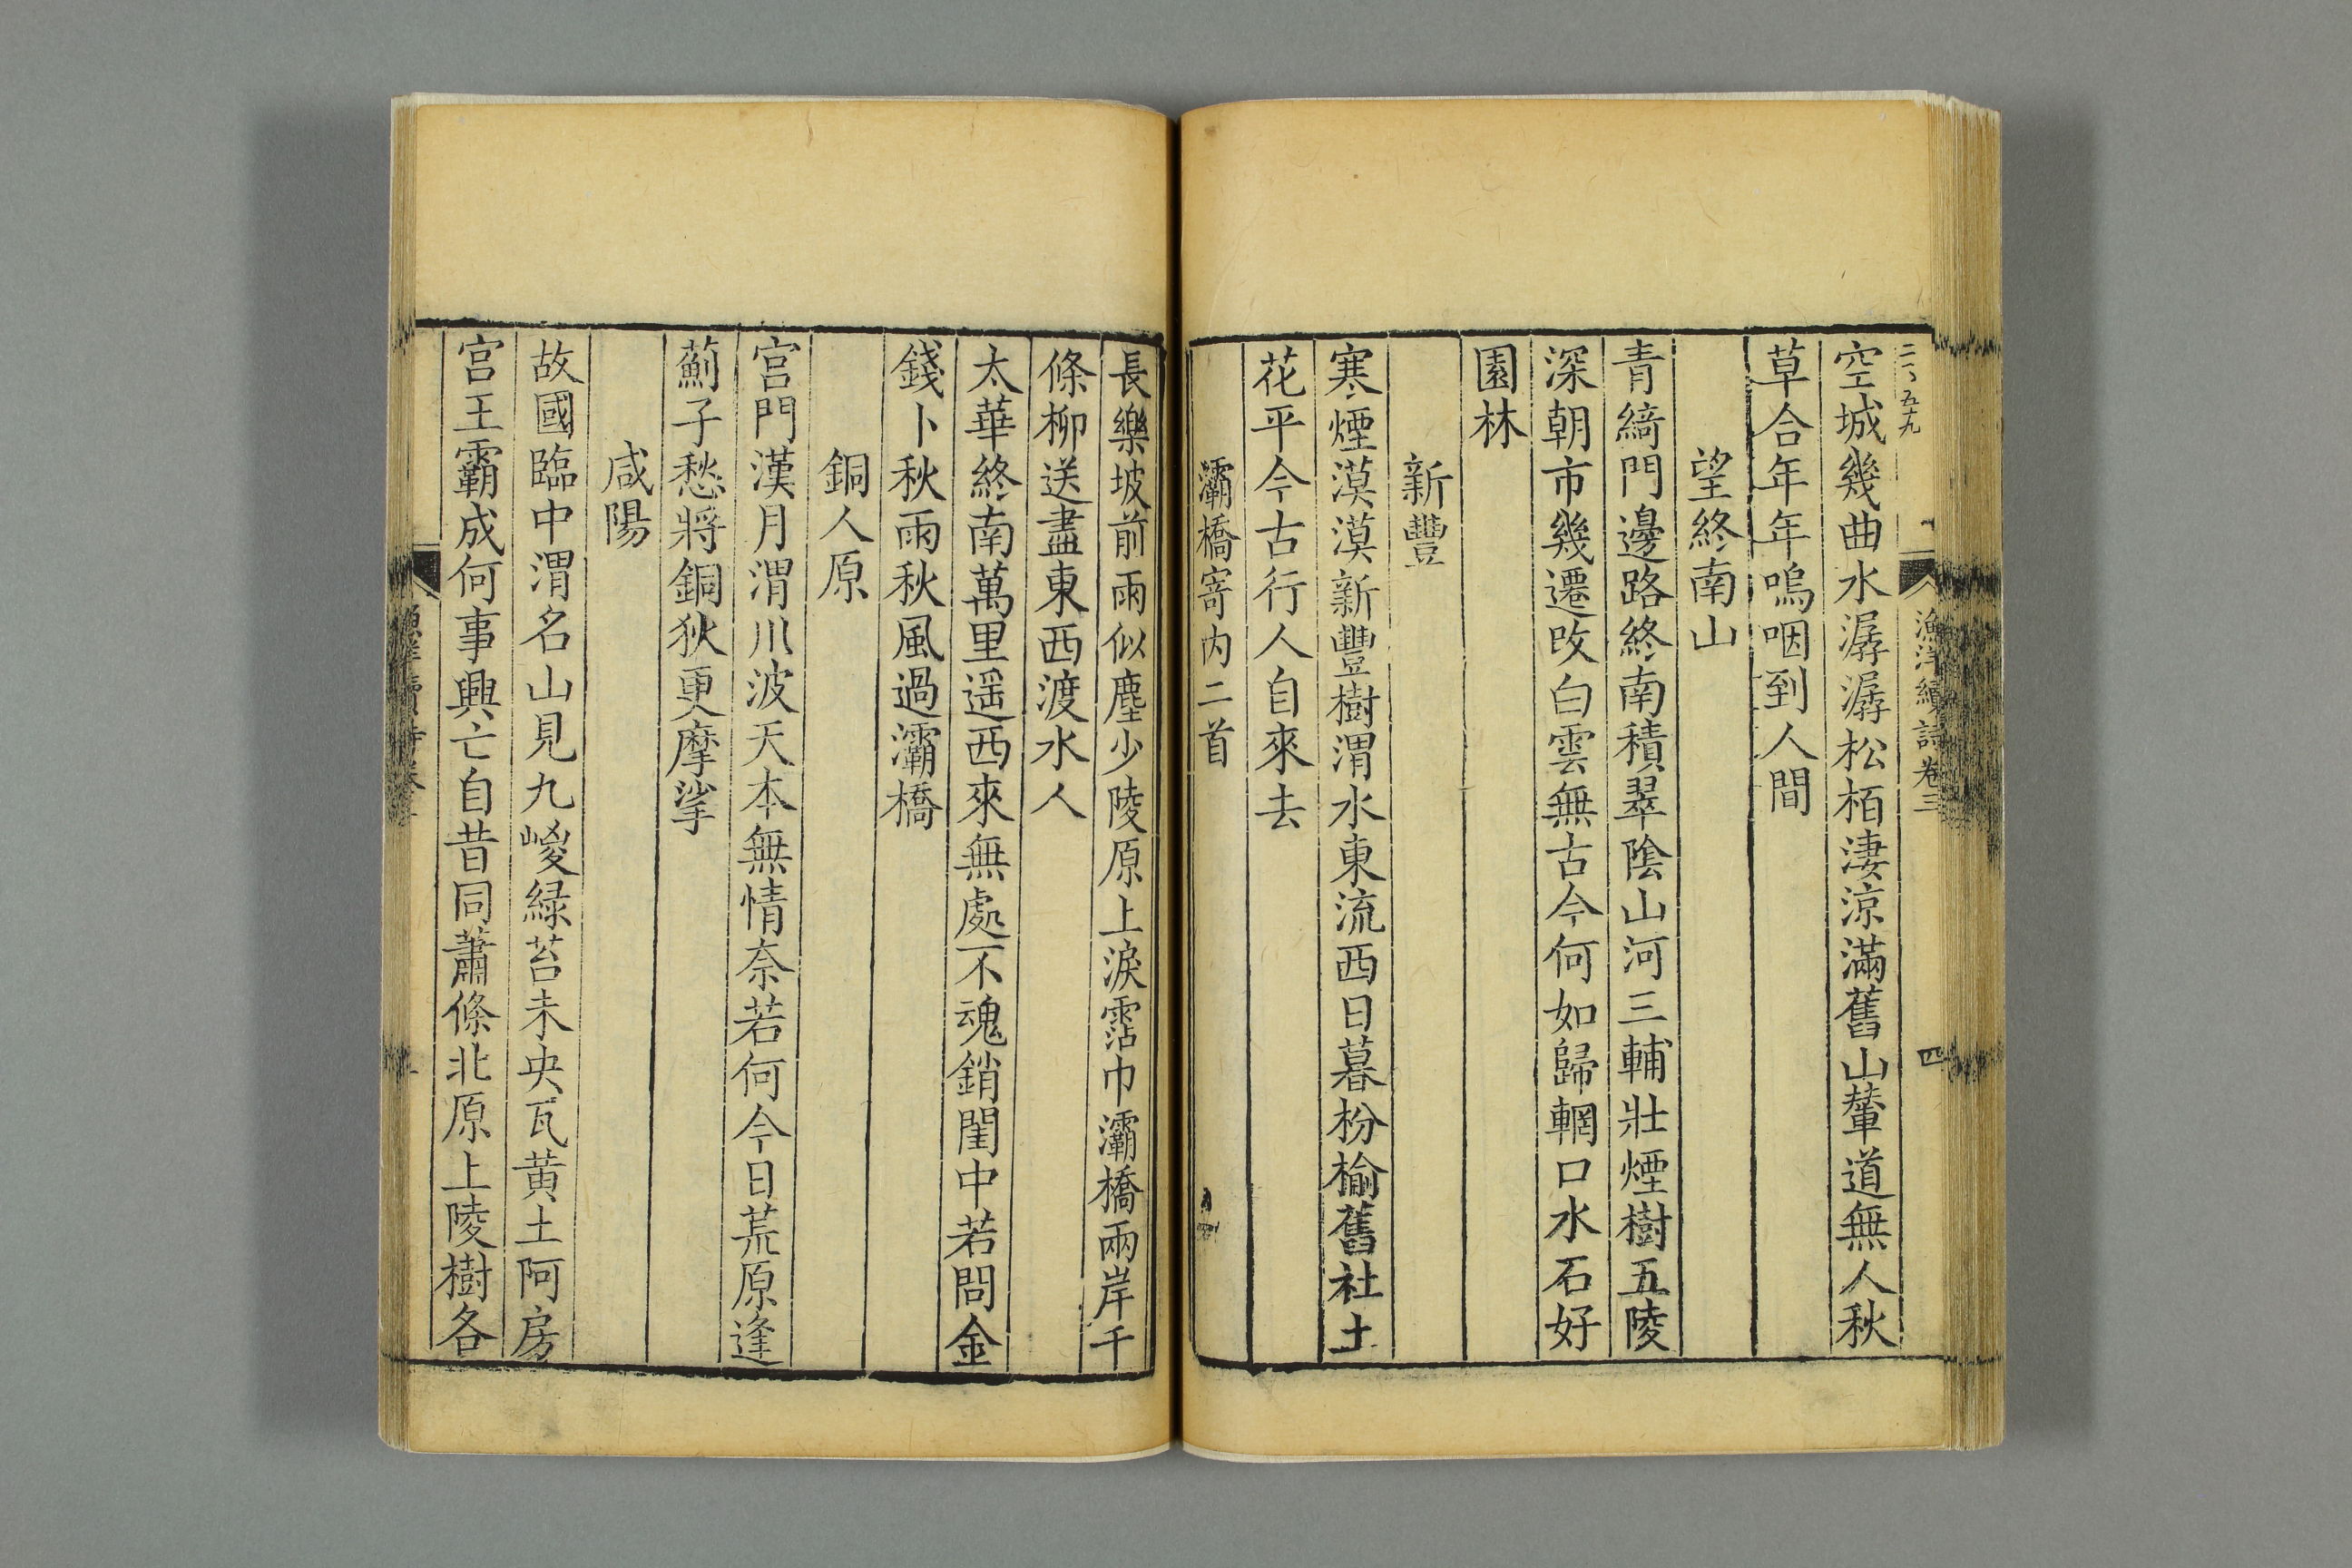 二、五十九
漁洋續詩卷三
四
空城幾曲水潺潺松栢淒涼滿舊山輦道無人秋
草合年年嗚咽到人間
望終南山
青綺門邊路終南積翠陰山河三輔壯煙樹五陵
深朝市幾遷改白雲無古今何如歸輞口水石好
園林
新豐
寒煙漠漠新豐樹渭水東流西日暮枌榆舊社土
花平今古行人自來去
灞橋寄内二首
長樂坡前雨似塵少陵原上淚霑巾灞橋兩岸千
條柳送盡東西渡水人
太華終南萬里遥西來無處不魂銷閨中若問金
錢卜秋雨秋風過灞橋
銅人原
宫門漢月渭川波天本無情奈若何今日荒原逢
薊子愁將銅狄更摩挲
咸陽
故國臨中渭名山見九嵕緑苔未央瓦黄土阿房
宫王霸成何事興亡自昔同蕭條北原上陵樹各